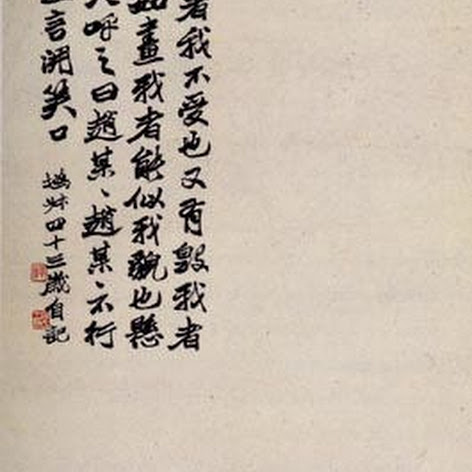 者我不愛也又有毀我者
如畫我者能似我貌也懸
呼之曰趙某、趙某、不行
言開笑口
撝叔四十三歲自記